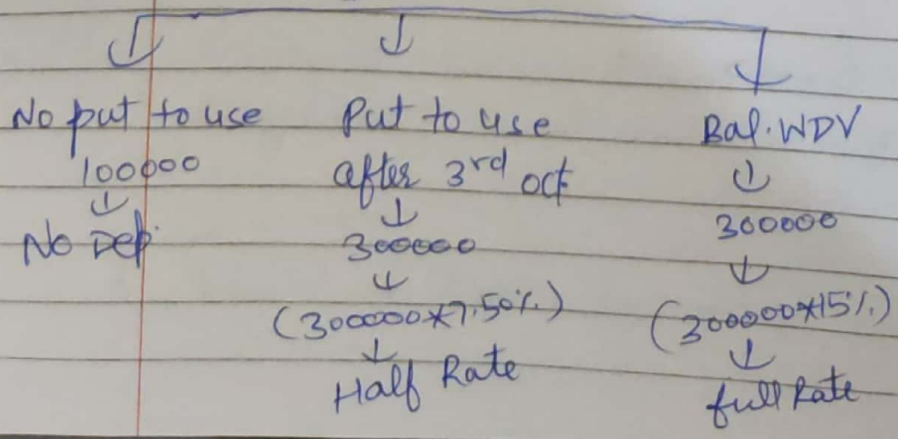 No put to use
100000
No Dep.
Put to use
after 3rd oct
300000
(300000*7.50%)
Half Rate
Bal. WDV
300000
(300000*15%)
full Rate